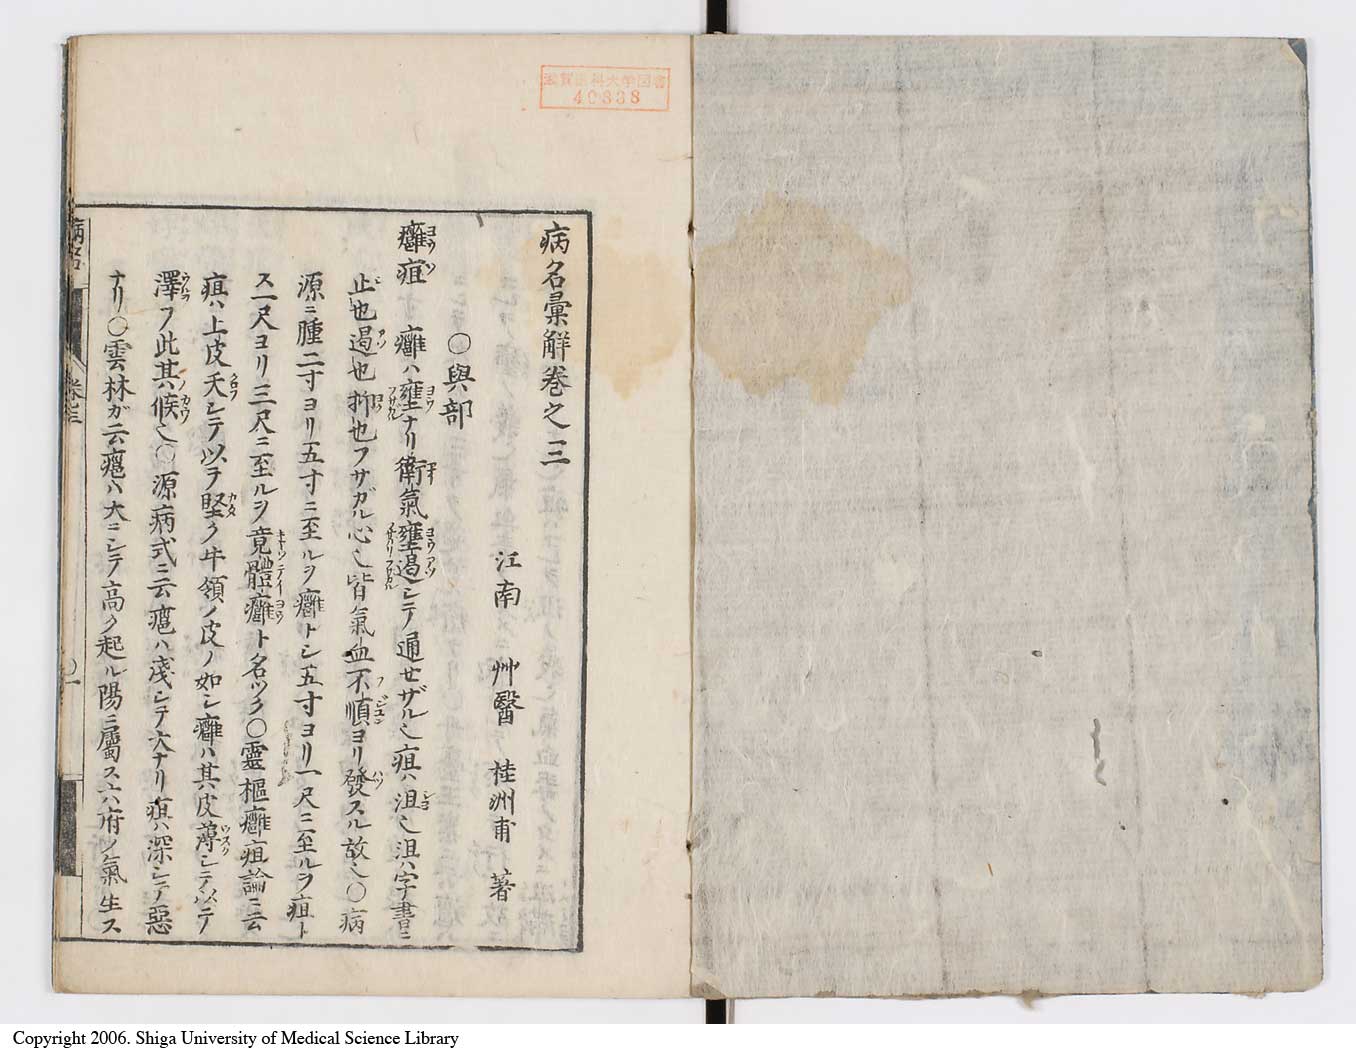 滋賀医科大学図書
40838
病名彙解巻之三
江南 艸醫 桂洲甫 著
〇與部
癰疽 癰ハ壅ナリ衛氣壅遏シテ通セザル也疽ハ沮也沮ハ字書ニ
止也遏也抑也フサガル心也皆氣血不順ヨリ發スル故也〇病
源ニ腫二寸ヨリ五寸ニ至ルヲ癰トシ五寸ヨリ一尺ニ至ルヲ疽ト
ス一尺ヨリ三尺ニ至ルヲ竟體癰ト名ヅク〇靈樞癰疽論ニ云
疽ハ上皮夭シテ以ヲ堅ク牛領ノ皮ノ如シ癰ハ其皮薄シテ以テ
澤フ此其ノ候也〇源病式ニ云瘡ハ淺シテ大ナリ疽ハ深シテ惡
ナリ〇雲林ガ云瘡ハ大ニシテ高ク起ル陽ニ屬ス六府ノ氣生ス
病名
卷三
〇一
Copyright 2006. Shiga University of Medical Science Library